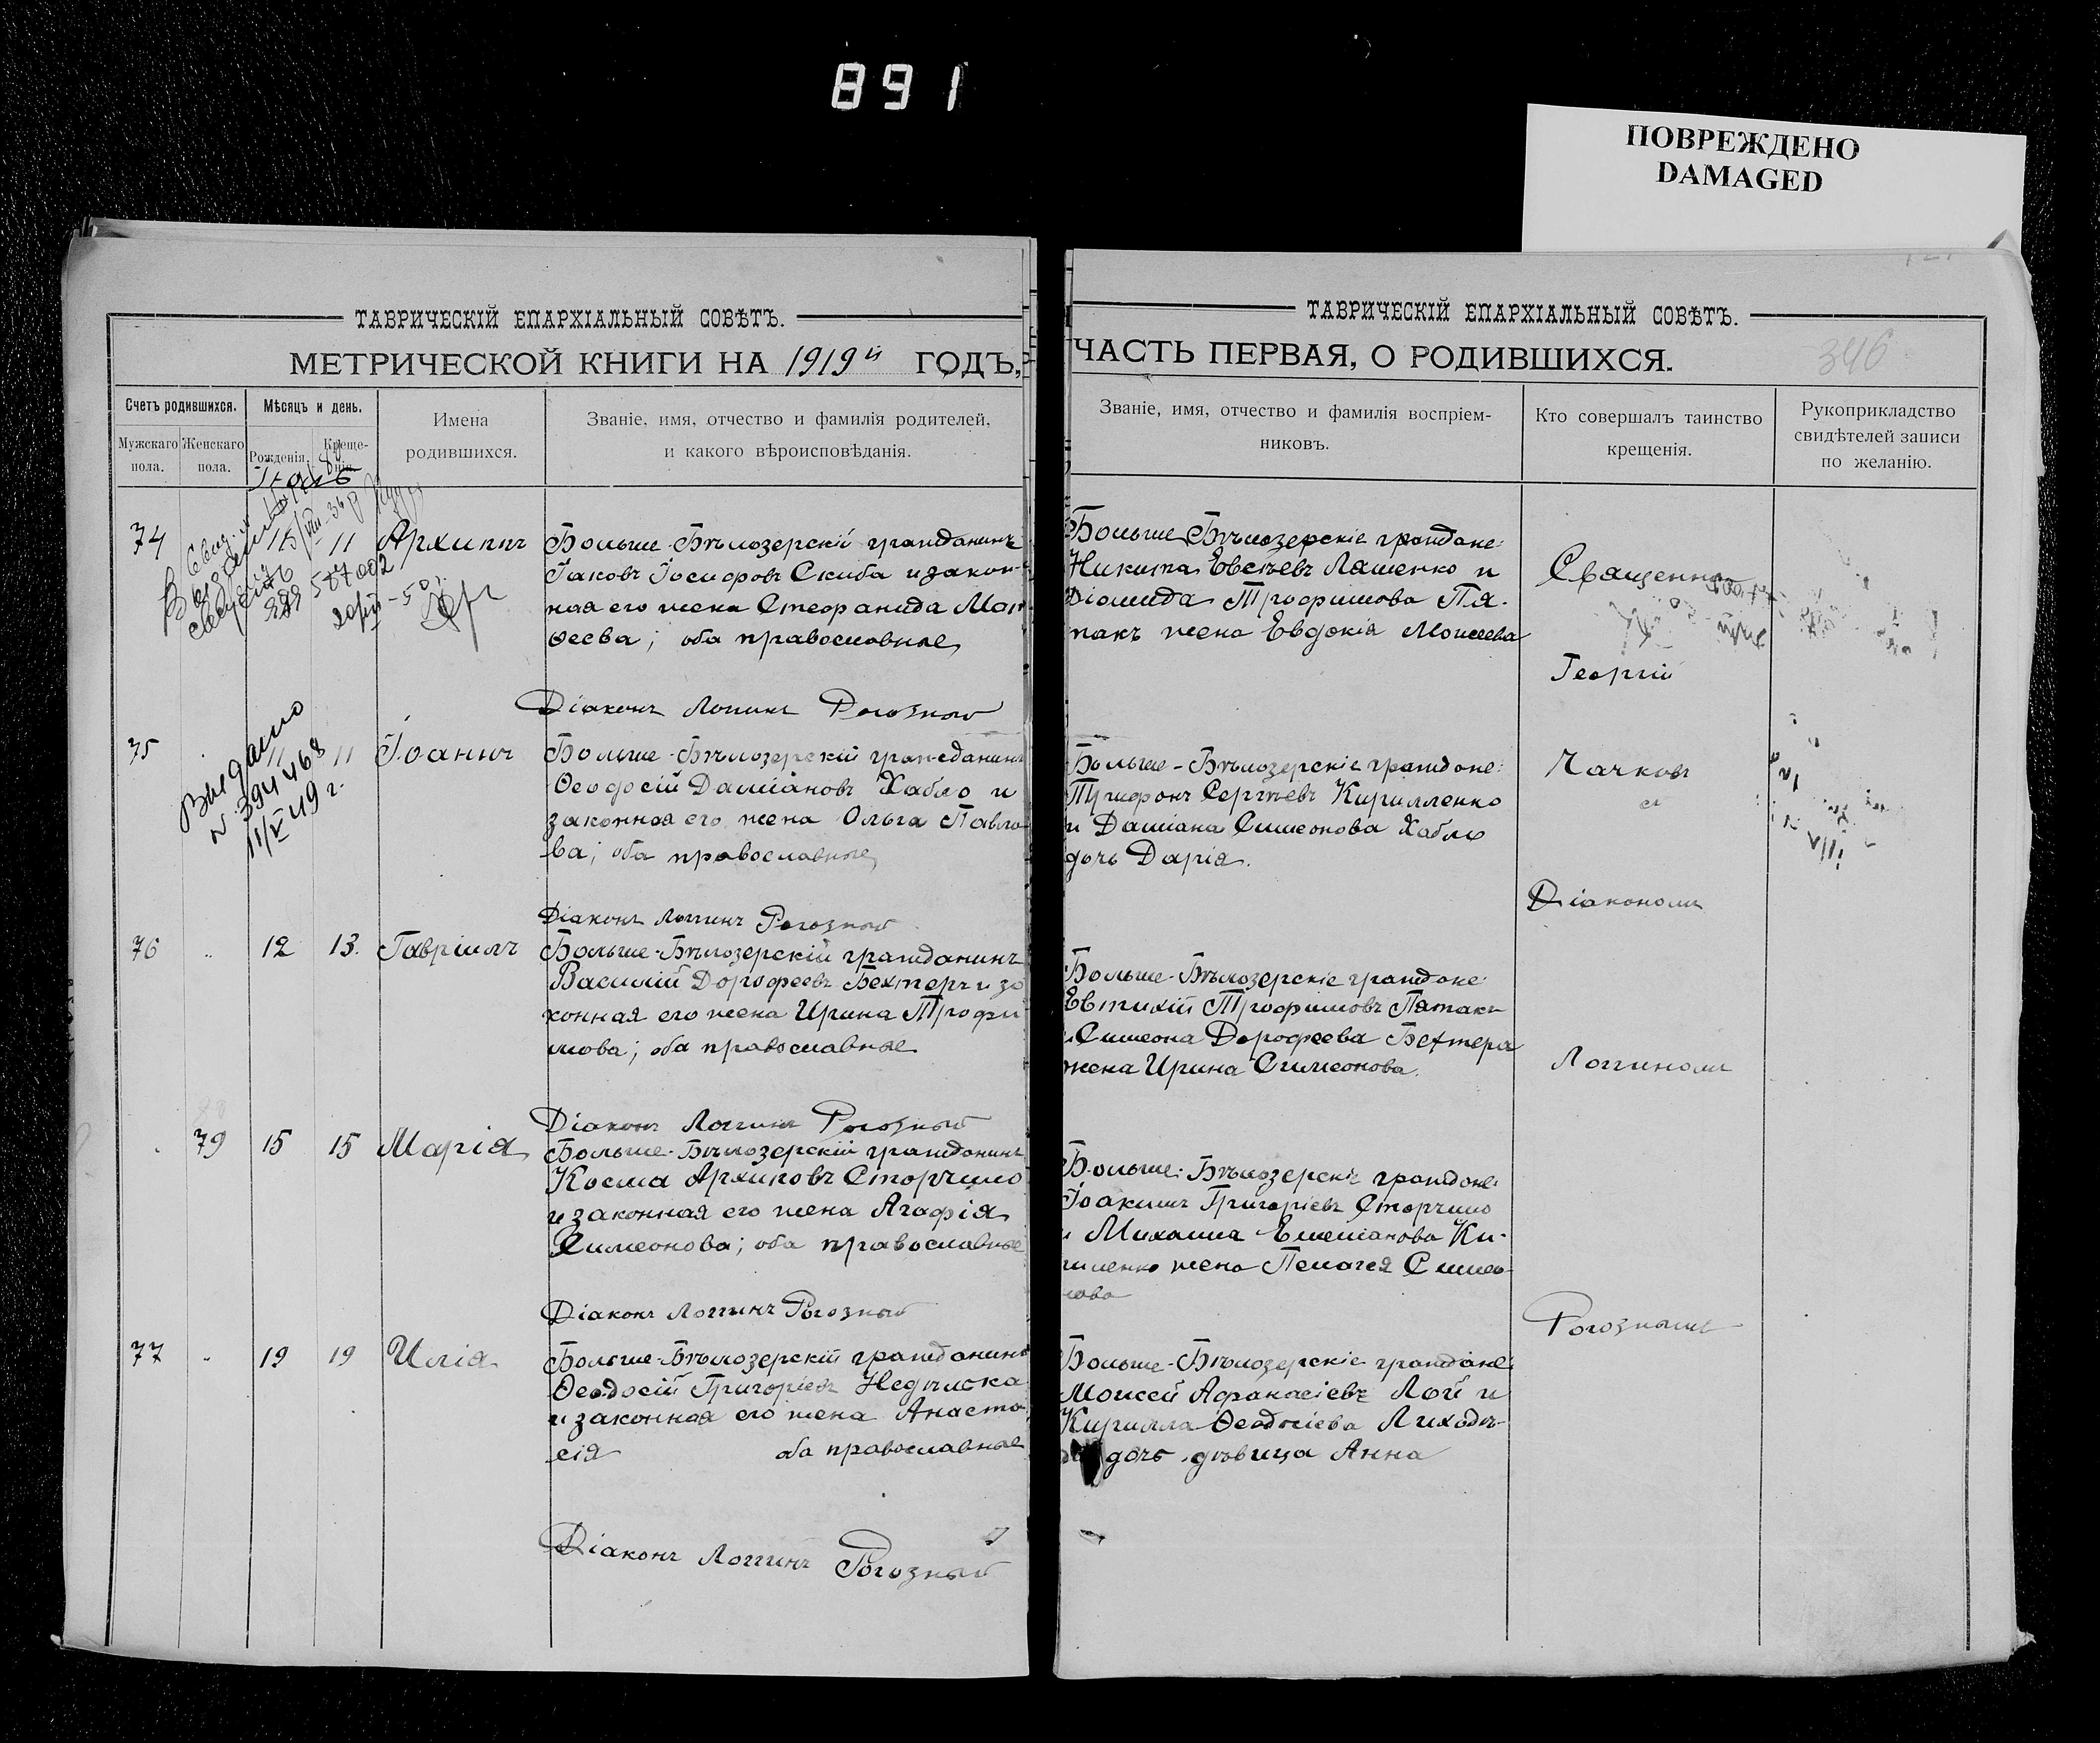 891
ПОВРЕЖДЕНО
DAMAGED
ТАВРИЧЕСКІЙ ЕПАРХІАЛЬНЫЙ СОВѢТЪ.
МЕТРИЧЕСКОЙ КНИГИ НА 1919й ГОДЪ,
Счетъ родившихся.
Мѣсяцъ и день.
Имена родившихся.
Званіе, имя, отчество и фамилія родителей,
и какого вѣроисповѣданія.
Мужскаго пола.
Женскаго пола.
Рожденія.
Крещенія.
74
11
Архиппъ
Больше-Бѣлозерскій гражданинъ
Іаковъ Іосифовъ Скиба и закон-
ная его жена Стефанида Мат
ѳеева; оба православные
587002
Діаконъ Логгинъ Рогозный
75
11
11
Іоаннъ
Выдано
N 394468
11/V 49 г.
Больше-Бѣлозерскій гражданинъ
Ѳеодосій Даміановъ Хабло и
законная его жена Ольга Павло
ва; оба православные
Діаконъ Логгинъ Рогозный
76
"
12
13.
Гавріилъ
Больше-Бѣлозерскій гражданинъ
Василій Дороѳеевъ Бехтеръ и за
конная его жена Ирина Трофи
мова; оба православные
Діаконъ Логгинъ Рогозный
79
15
15
Марія
Больше-Бѣлозерскій гражданинъ
Косма Архиповъ Сторчило
и законная его жена Агафія
Симеонова; оба православные
Діаконъ Логгинъ Рогозный
77
"
19
19
Илія
Больше-Бѣлозерскій гражданинъ
Ѳеодосій Григоріевъ Недѣлька
и законная его жена Анаста
сія оба православные
Діаконъ Логгинъ Рогозный
ТАВРИЧЕСКІЙ ЕПАРХІАЛЬНЫЙ СОВѢТЪ.
ЧАСТЬ ПЕРВАЯ, О РОДИВШИХСЯ.
346
Званіе, имя, отчество и фамилія воспріем-
никовъ.
Кто совершалъ таинство
крещенія.
Рукоприкладство
свидѣтелей записи
по желанію.
Больше-Бѣлозерскіе граждане:
Никита Евсѣевъ Ляшенко и
Діомида Трофимова Пя-
такъ жена Евдокія Моисеева
Больше-Бѣлозерскіе граждане:
Трифонъ Сергѣевъ Кирилленко
и Даміана Симеонова Хабло
дочь Дарія.
Больше-Бѣлозерскіе граждане:
Евтихій Трофимовъ Пятакъ
и Симеона Дороѳеева Бехтера
жена Ирина Симеонова.
Больше-Бѣлозерскіе граждане:
Іоакимъ Григоріевъ Сторчило
и Михаила Емеліанова Ки-
жена Пелагея Симео-
нова
Больше-Бѣлозерскіе граждане:
Моисей Афанасіевъ Лой и
Кирилла Ѳеодосіева Лиходѣ-
дочь дѣвица Анна
Священникъ
Георгій
Чачковъ
съ
Діакономъ
Логгиномъ
Рогознымъ